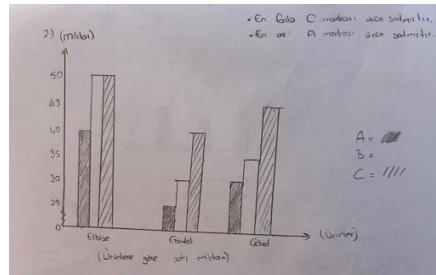 • En fazla C markası ürün satmıştır.
2-) (miktar)
• En az A markası ürün satmıştır.
50
45
40
35
30
25
0
A =
B =
C =
Elbise
Gömlek
Ceket
(Ürünler)
(Ürünlere göre satış miktarı)